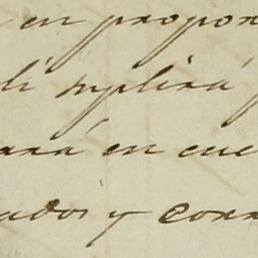 en propor
suplirá
ará en cue
ados y corr